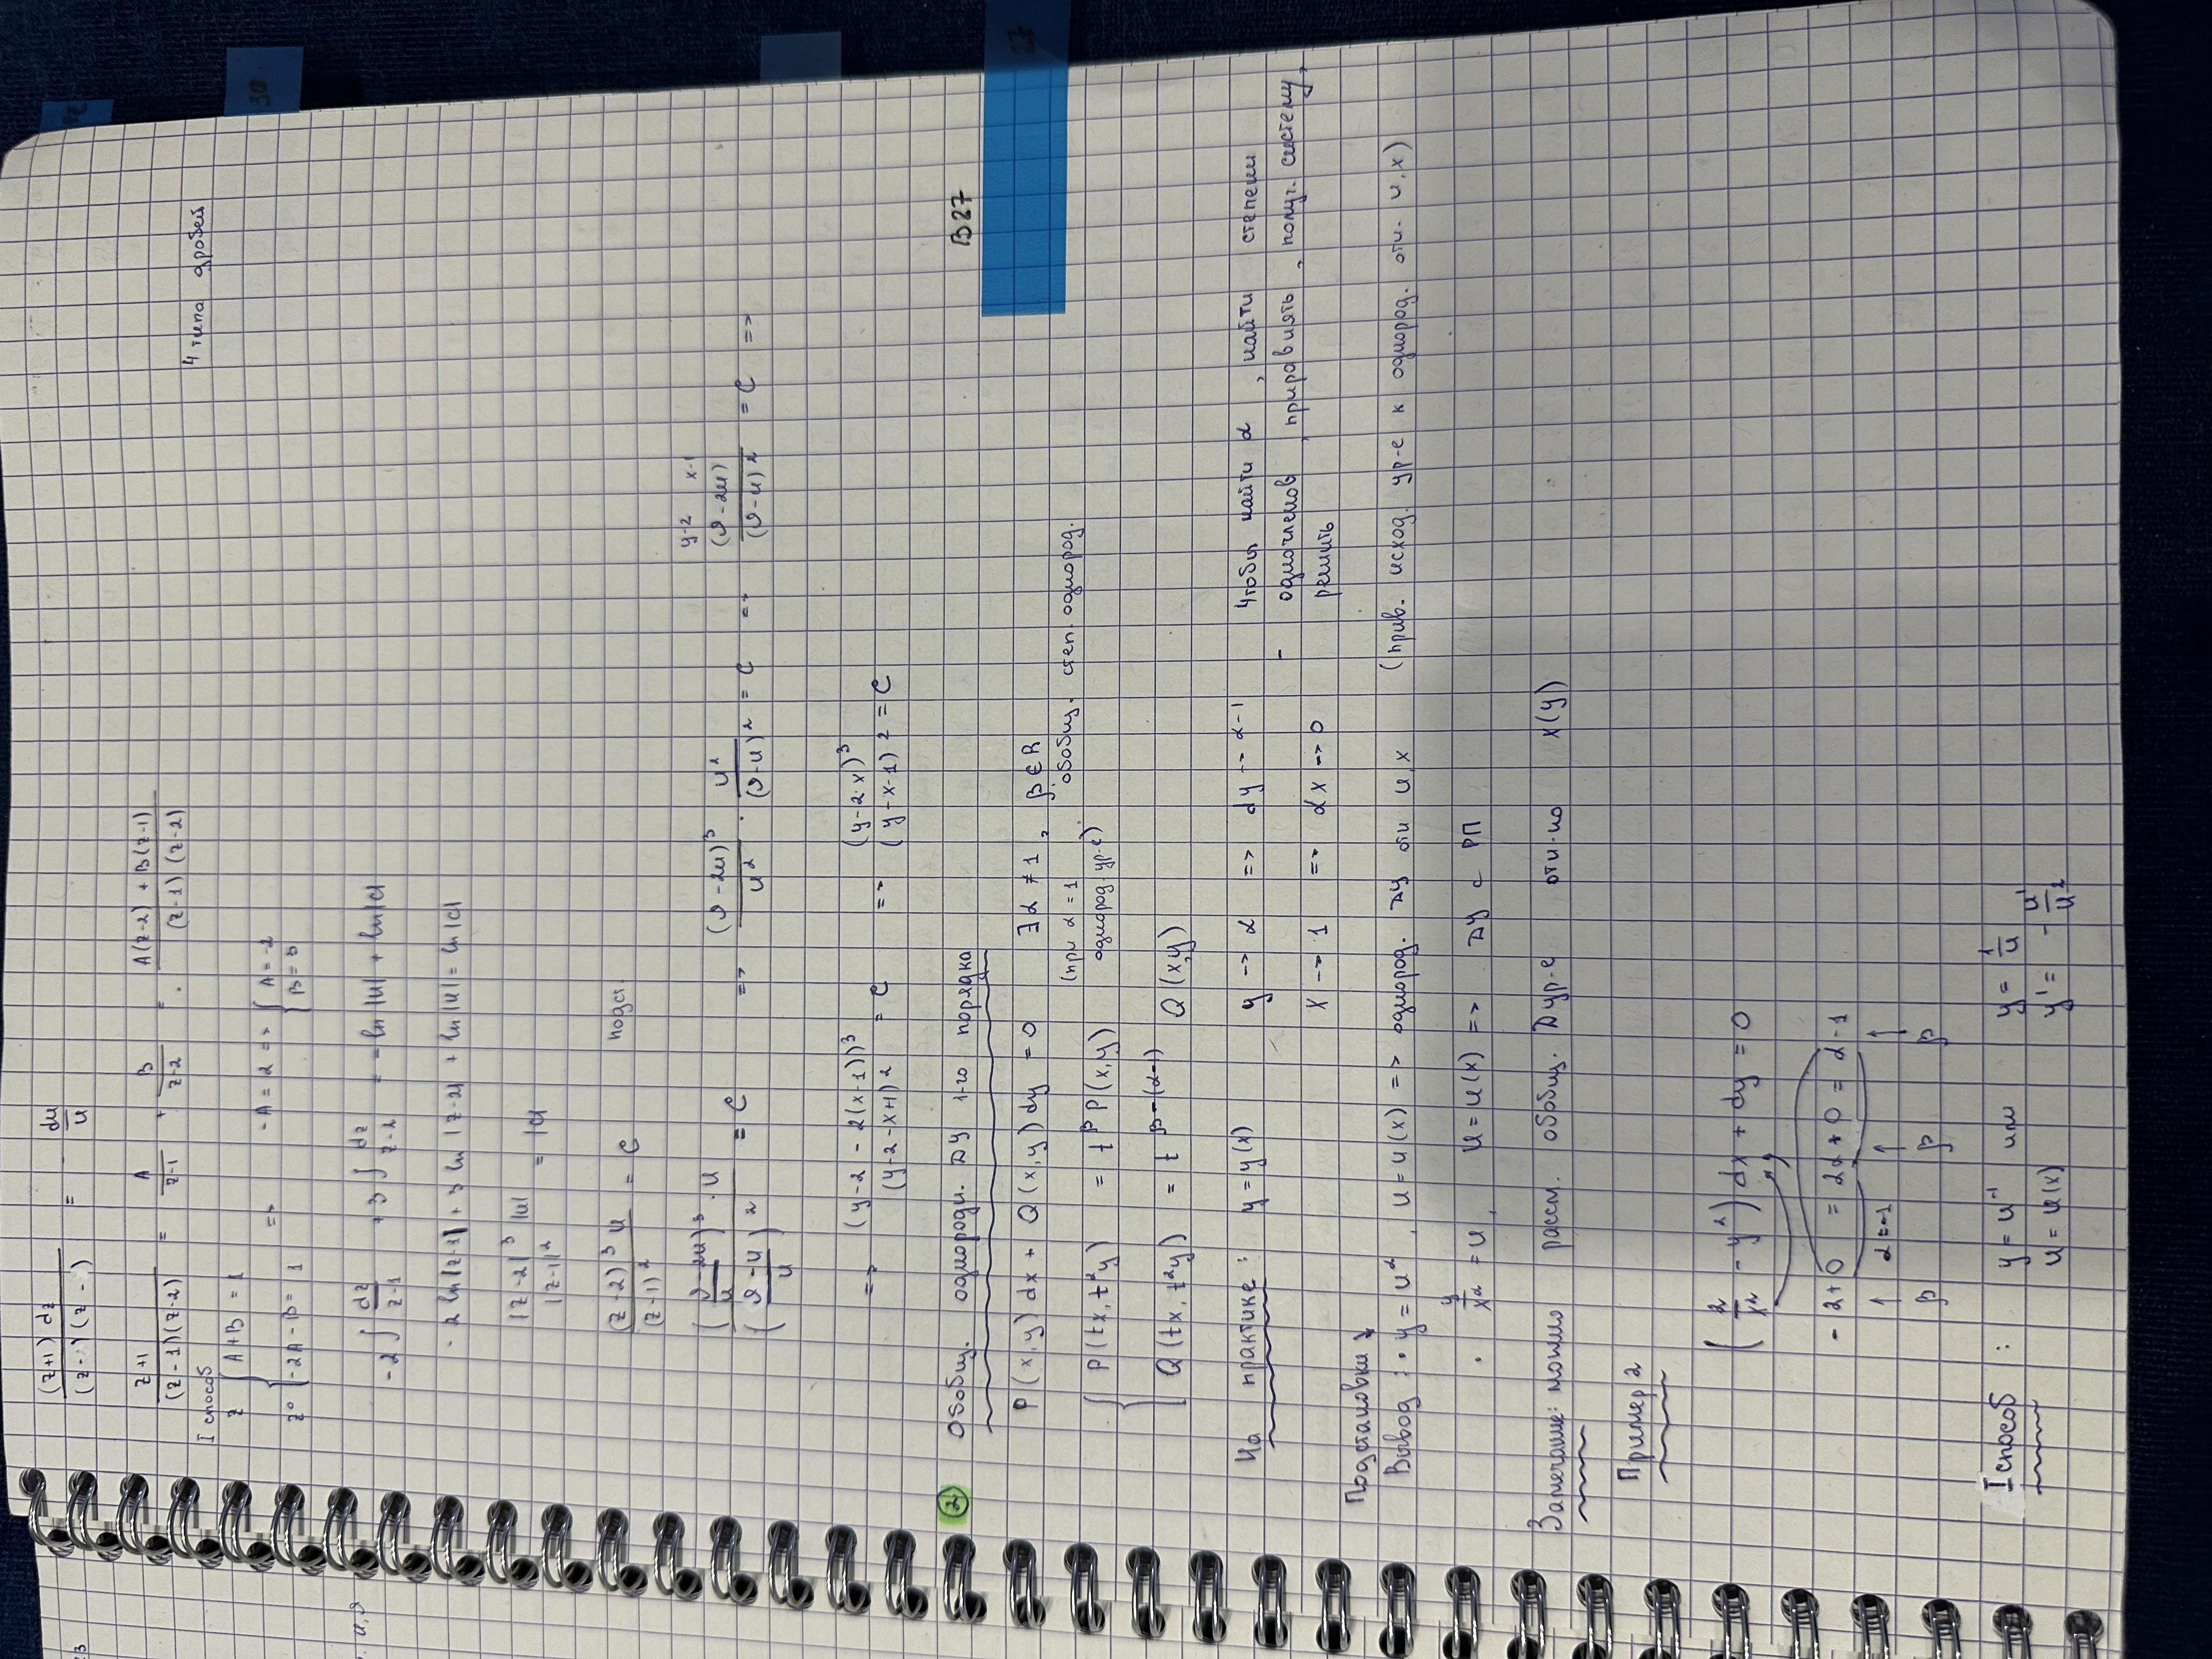 (z+1) dz / (z- )(z - ) = - du/u
z+1 / (z-1)(z-2) = A/(z-1) + B/(z-2) = A(z-2) + B(z-1) / (z-1)(z-2)
4 типа дробей
I способ
z { A+B = 1
z⁰ { -2A-B = 1 => -A = 2 => { A = -2
B = 3
-2 ∫ dz/(z-1) + 3 ∫ dz/(z-2) = - ln|u| + ln|c|
- 2 ln|z-1| + 3 ln |z-2| + ln|u| = ln|c|
|z-2|³ |u| / |z-1|² = |c|
(z-2)³ u / (z-1)² = C подст.
y-2 x-1
((ϑ-2u)/u)³ · u / ((ϑ-u)/u)² = C => (ϑ-2u)³/u² · u²/(ϑ-u)² = C => (ϑ-2u)/(ϑ-u)² = C =>
=> (y-2 - 2(x-1))³ / (y-2-x+1)² = C => (y-2x)³ / (y-x-1)² = C
② Обобщ. однородн. ДУ 1-го порядка В27
P(x,y)dx + Q(x,y)dy = 0 ∃α ≠ 1, β∈R
(при α = 1 обобщ. степ. однород.
{ P(tx, t^αy) = t^β P(x,y) однород. ур-е)
Q(tx, t^αy) = t^(β-(α-1)) Q(x,y)
На практике: y = y(x) y → α => dy → α-1 Чтобы найти α, найти степени
- одночленов, приравнять, получ. систему,
x → 1 => dx → 0 решить
Подстановки ↓
Вывод: • y = u^α, u = u(x) => однород. ДУ отн u, x (прив. исход. ур-е к однород. отн. u, x)
• y/x^α = u, u = u(x) => ДУ с РП
Замечание: можно рассм. обобщ. Дур-е отн-но x(y)
Пример 2
(2/x² - y²) dx + dy = 0
- 2+0 = 2α+0 = α-1
↑ α=-1 ↑ ↑
β β β
I способ: y = u⁻¹ или y = 1/u
u = u(x) y' = - u'/u²